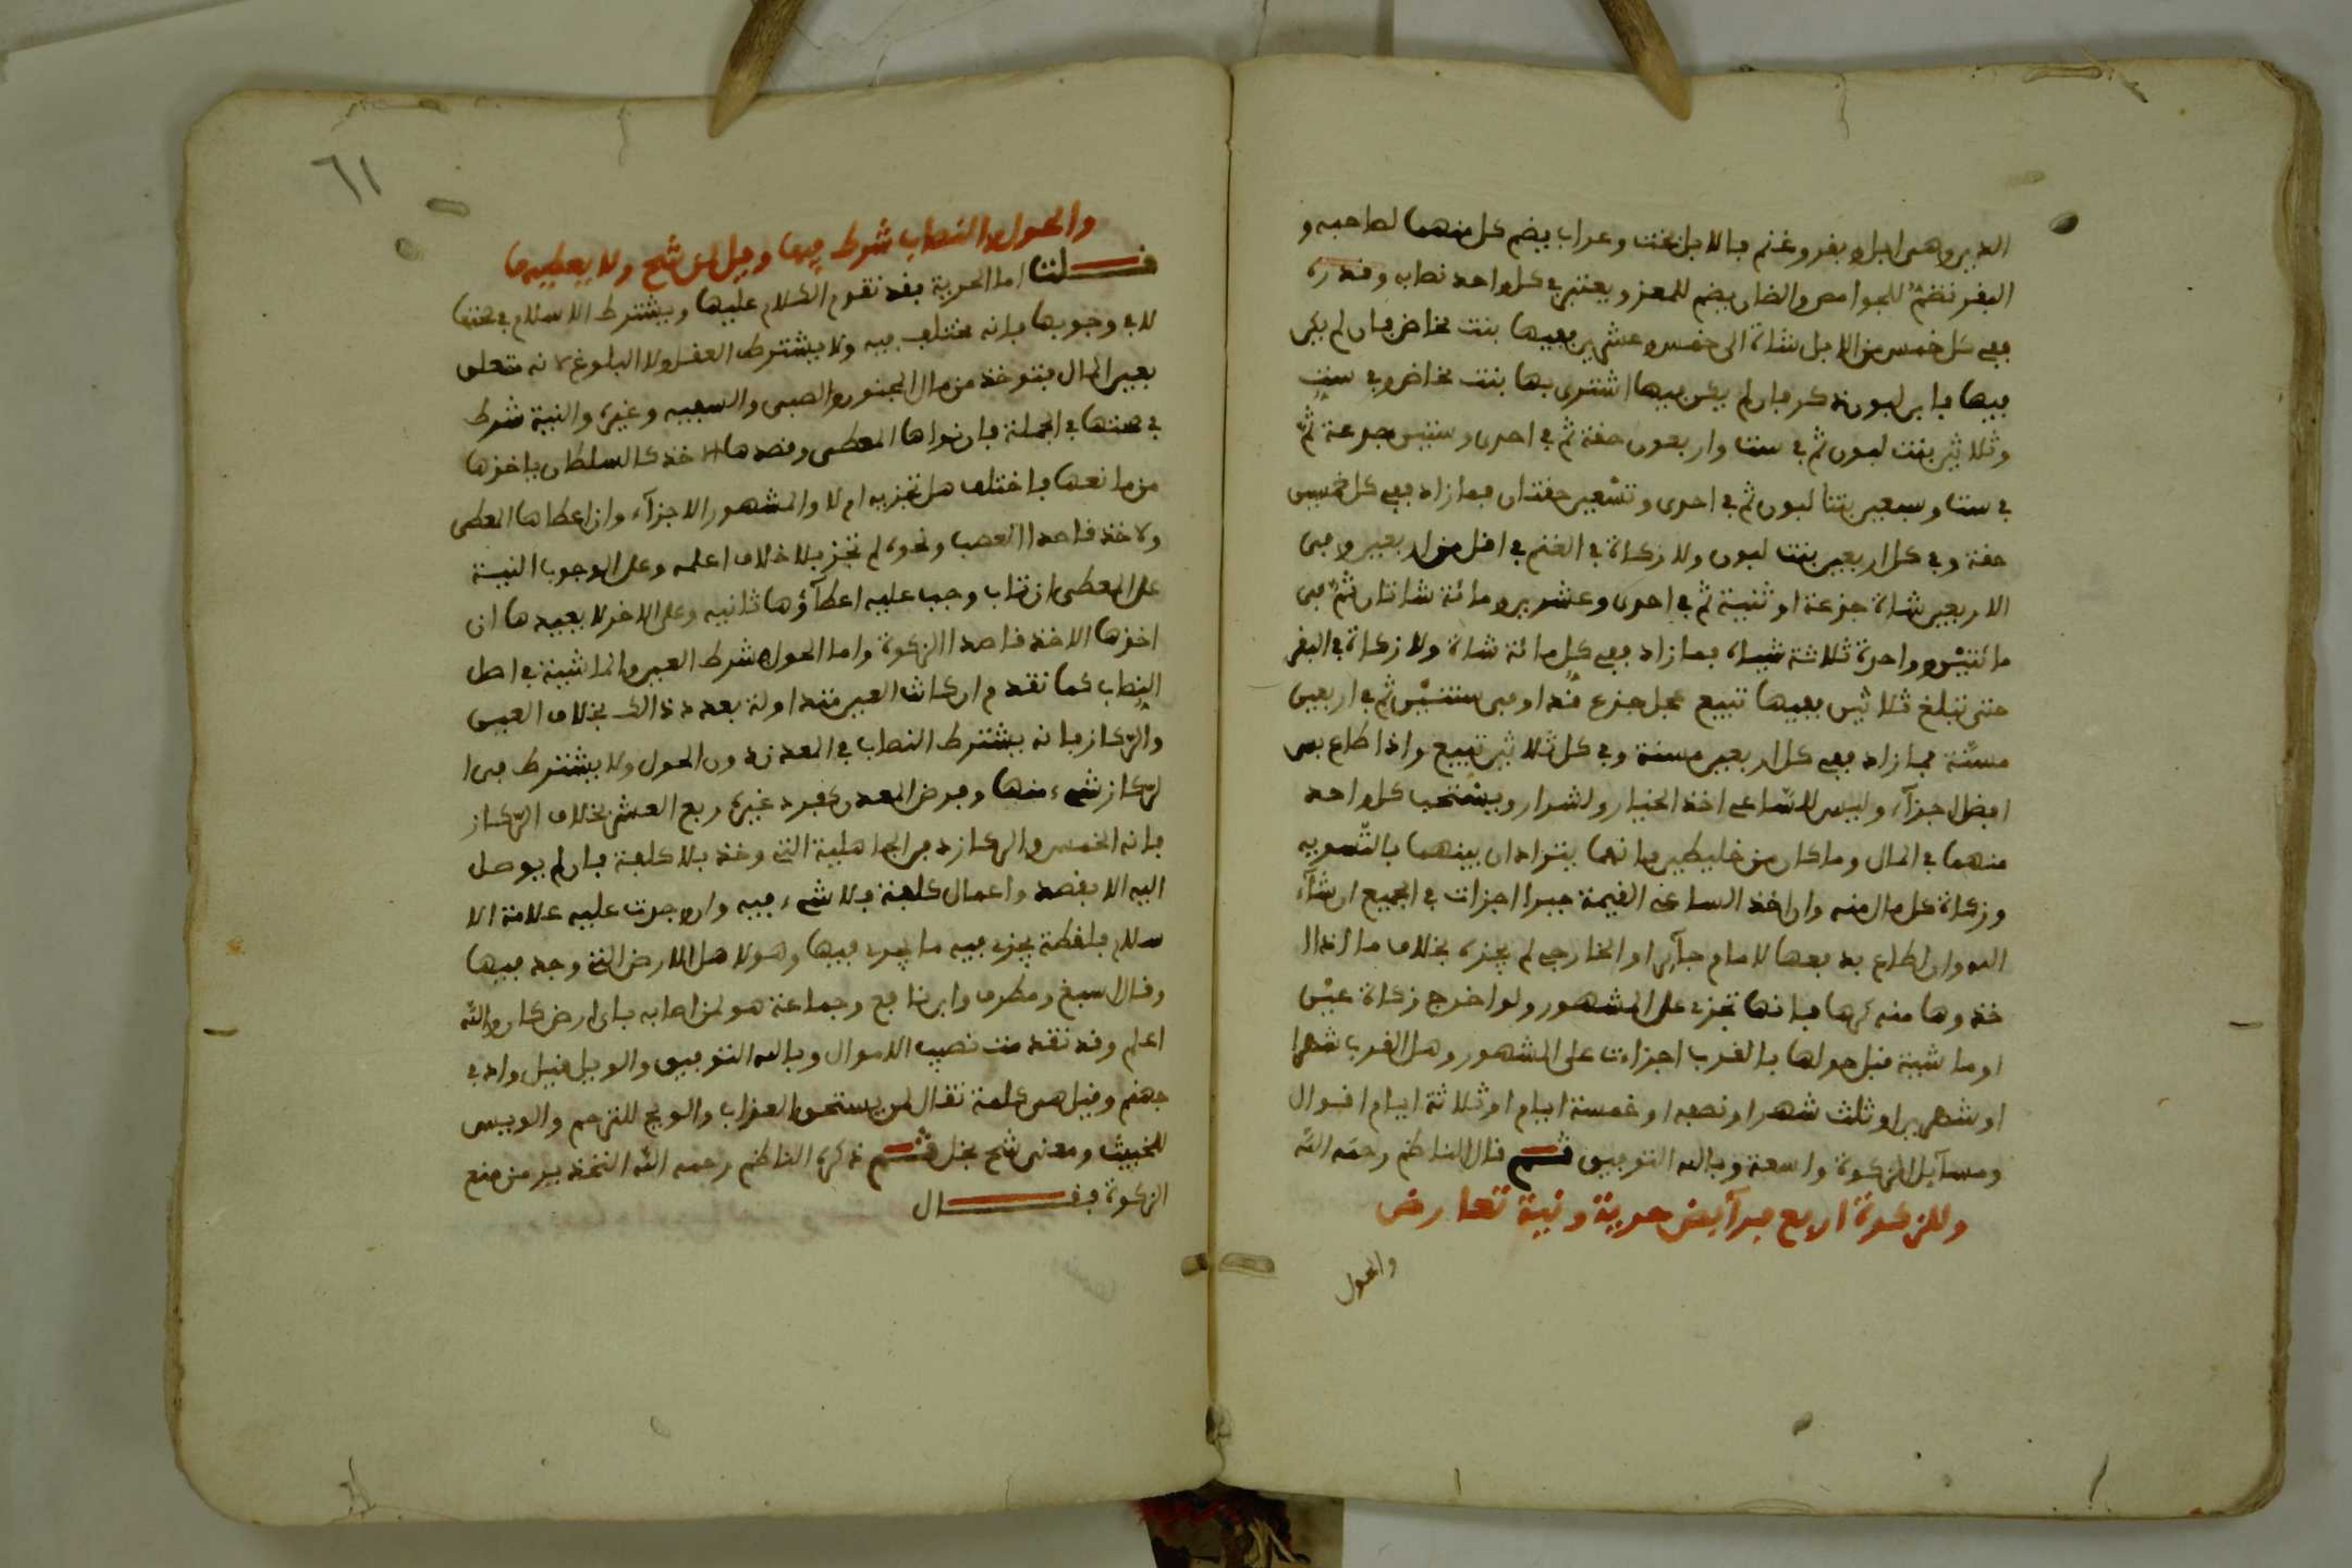 الدير وهي ابل وبقر وغنم فالابل بخت وعراب يضم كل منهما لصاحبه و
البقر تضم للجوامس والضان يضم للمعز ويعتبر في كل واحد نصاب وقدره
ففي كل خمس من الابل شاة الى خمس وعشرين ففيها بنت مخاض فان لم يكن
فيها فابن لبون ذكر فان لم يكن فيها اشترى بها بنت مخاض وفي ست
وثلاثين بنت لبون ثم في ست واربعون حقة ثم في احدى وستين جذعة ثم
في ست وسبعين بنتا لبون ثم في احدى وتسعين حقتان فما زاد ففي كل خمسين
حقة وفي كل اربعين بنت لبون ولا زكاة في الغنم في اقل من اربعين وفي
الاربعين شاة جذعة او ثنية ثم في احدى وعشرين ومائة شاتان ثم في
مائتين وواحدة ثلاثة شياه فما زاد ففي كل مائة شاة ولا زكاة في البقر
حتى تبلغ ثلاثين ففيها تبيع عجل جذع قد اوفى سنتين ثم في اربعين
مسنة فما زاد ففي كل اربعين مسنة وفي كل ثلاثين تبيع واذا طاع بس
افضل اجزاء وليس للساعي اخذ الخيار ولشرار ويستحب كل واحد
منهما في المال وما كان من خليطين فانهما يترادان بينهما بالتسويه
وزكاة كل مال منه وان اخذ الساعي القيمة جبرا اجزات في الجميع ان شاء
الله وان طاع بدفعها لامام جائر او الخارجي لم يجزه بخلاف ما اذا ا
خذوها منه كرها فانها تجزي على المشهور ولو اخرج زكاة عين
او ماشية قبل حولها بالقرب اجزات على المشهور وهل القرب شهرا
او شهرين او ثلث شهر او نصفه او خمسة ايام او ثلاثة ايام اقوال
ومسائل الزكوة واسعة وبالله التوفيق ثم قال الناظم رحمه الله
وللزكوة اربع فرآيض حرية ونية تعارض
والحول
٦١
والحول والنصاب شرط فيها وويل لمن شح ولا يعطيها
قلت اما الحرية فقد تقدم الكلام عليها ويشترط الاسلام في صحتها
لا في وجوبها فانه مختلف فيه ولا يشترط العقل ولا البلوغ لانه متعلق
بعين المال فتوخذ من مال المجنون والصبي والسفيه وغيره والنية شرط
في صحتها في الجملة فان نواها المعطي وقصدها الاخذ كالسلطان ياخذها
من مانعها فاختلف هل تجزيه ام لا والمشهور الاجزاء وان اعطاها المعطي
ولاخذ قاصدا الغصب ونحوه لم تجز بلا خلاف اعلمه وعلى الوجوب النية
على المعطي ان تاب وجب عليه اعطاؤها ثانيه وعلى الاخر لا يعيدها ان
اخذها الاخذ قاصدا الزكوة واما الحول فشرط العين والماشية في اصل
النصاب كما تقدم ان كانت العين متداولة بعدد ذالك بخلاف العين
والركاز فانه يشترط النصاب في المعدن دون الحول ولا يشترط في ا
لركاز شيء منها وفرض المعدن كفرد غيره ربع العشر بخلاف الركاز
فانه الخمس والركاز دفن الجاهلية التي وخذ بلا كلفة فان لم يوصل
اليه الا بقصد واعمال كلفة فلا شيء فيه وان وجدت عليه علامة الا
سلام فلقطة يجزي فيه ما يجري فيها وهو لاهل الارض التي وجد فيها
وقال اصبغ ومطرف وابن نافع وجماعة هو لمن اصابه باي ارض كان والله
اعلم وقد تقدمت نصب الاموال وبالله التوفيق والويل قيل واد في
جهنم وقيل هي كلمة تقال لمن يستحق العذاب والويح للترحم والويس
للخبيث ومعنى شح بخل ثم ذكر الناظم رحمه الله التحذير من منع
الزكوة فقال